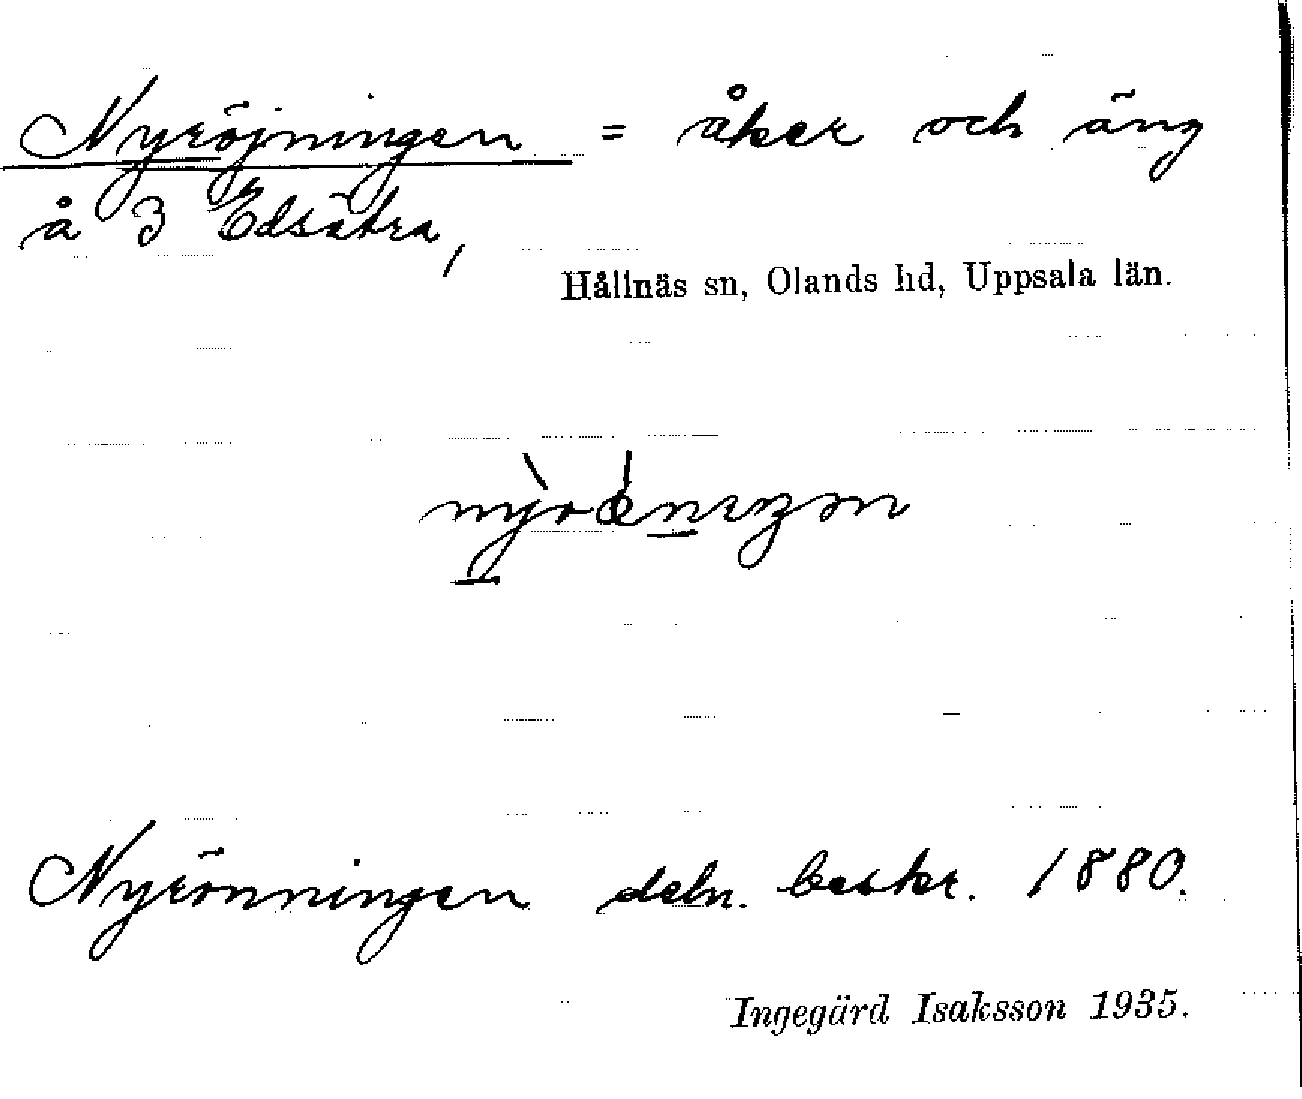 Nyröjningen = åker och äng
å 3 Edsätra,
Hållnäs sn, Olands hd, Uppsala län.
Nyrönningen deln. beskr. 1880.
Ingegärd Isaksson 1935.